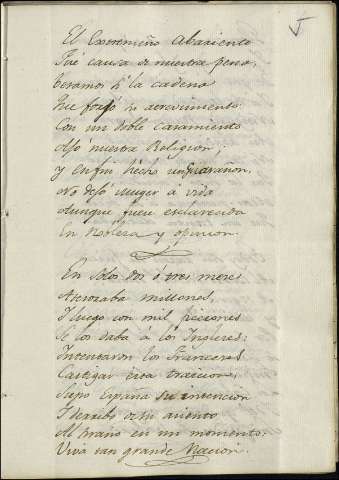 El Extremeño abariento
Fué causa de nuestra pena,
la cadena
Que forjó su atrevimiento
Con un doble casamiento
Dejó nuestra Religion,
y en fin hecho un Garañon,
No dejó muger à vida
Aunque fuese esclarecida
En Nobleza y opinion.
En solos dos ó tres meses
Atesoraba millones,
Y luego con mil
Se los daba à los Ingleses:
Intentaron los Franceses
Castigar esta traicion,
Supo España su intencion
Y derribó de su asiento
Al tirano en un momento.
Viva tan grande Nacion.